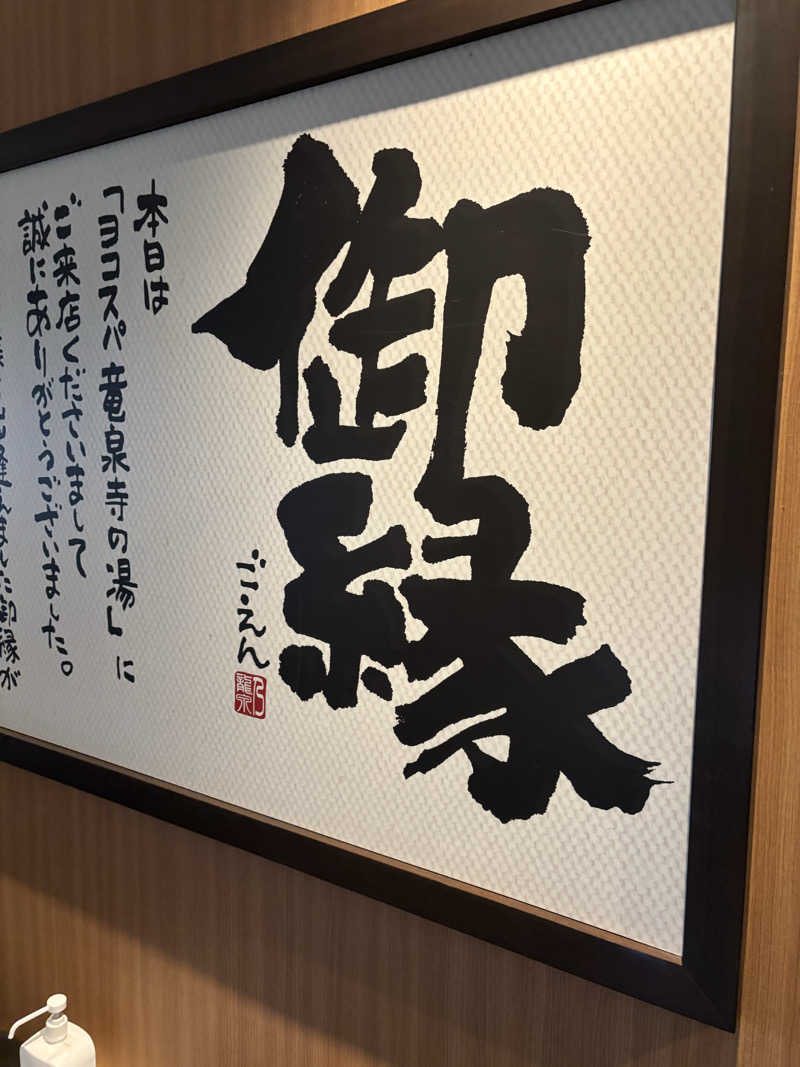 御縁
ご・えん
乃
龍泉
本日は
「ヨコスパ竜泉寺の湯」に
ご来店くださいまして
誠にありがとうございました。
ました御縁が